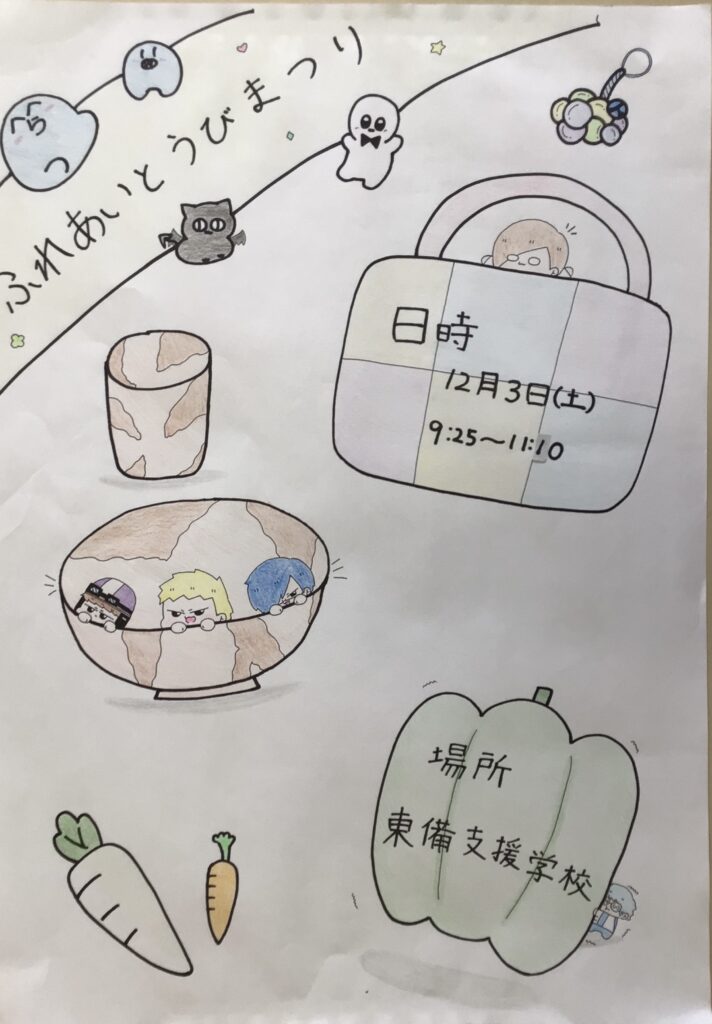 ふれあいとうびまつり
日時
12月3日(土)
9:25～11:10
場所
東備支援学校